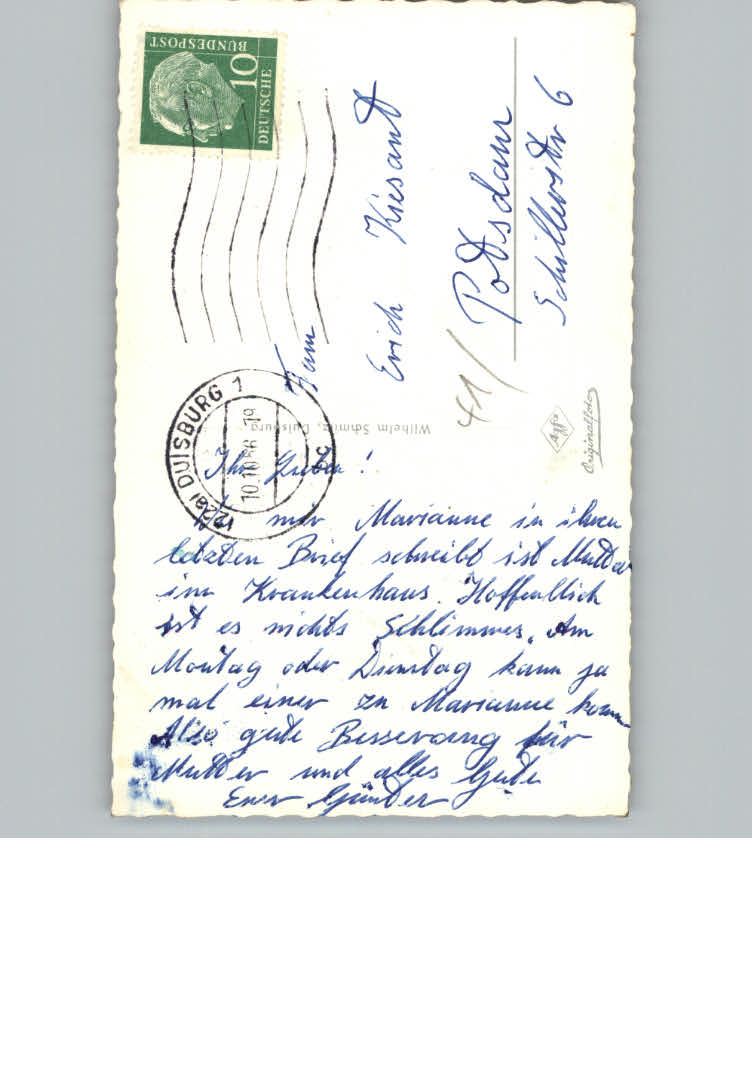 DEUTSCHE
BUNDESPOST
10
(22a) DUISBURG 1
10.11.56-19
Fam
Erich Kiesant
Potsdam
Schillerstr 6
41/
Wilhelm Schmitz, Duisburg
Agfa
Originalfoto
Ihr Lieben!
mir Marianne in ihren
letzten Brief schreibt ist Mutter
im Krankenhaus. Hoffentlich
ist es nichts Schlimmes. Am
Montag oder Dienstag kann ja
mal einer zu Marianne komm
Also gute Besserung für
Mutter und alles Gute
Euer Günter